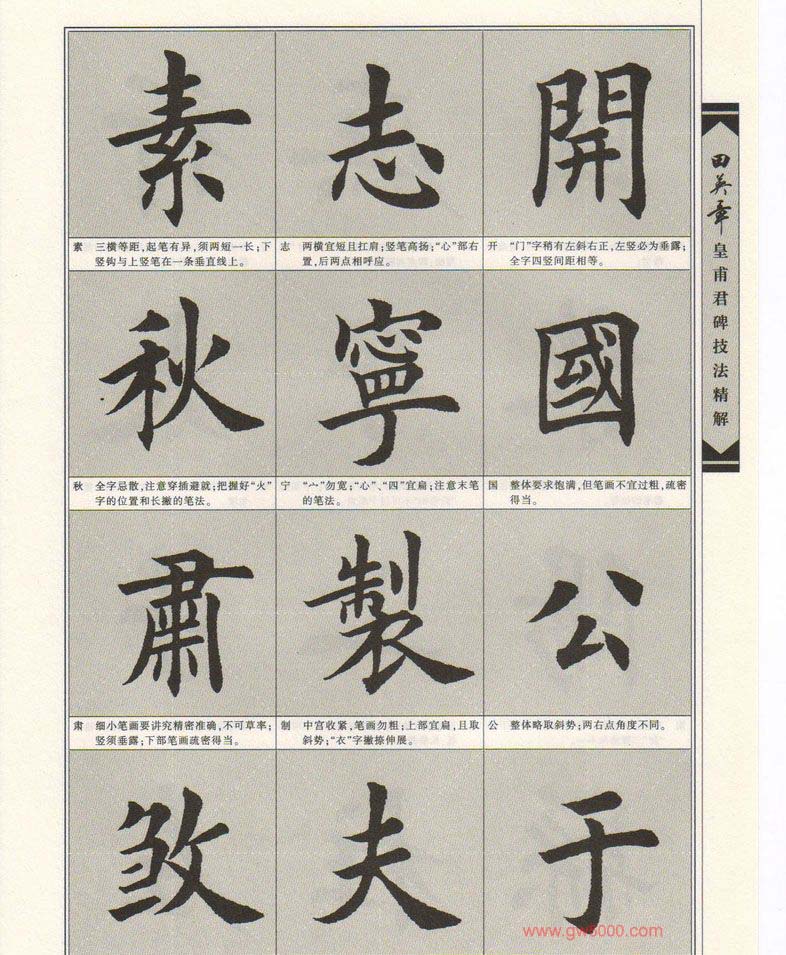 田英章皇甫君碑技法精解
開
开 “门”字稍有左斜右正，左竖必为垂露；
全字四竖间距相等。
國
国 整体要求饱满，但笔画不宜过粗，疏密
得当。
公
公 整体略取斜势；两右点角度不同。
于
志
志 两横宜短且扛肩；竖笔高扬；“心”部右
置，后两点相呼应。
寧
宁 “宀”勿宽；“心”、“四”宜扁；注意末笔
的笔法。
製
制 中宫收紧，笔画勿粗；上部宜扁，且取
斜势；“衣”字撇捺伸展。
夫
素
素 三横等距，起笔有异，须两短一长；下
竖钩与上竖笔在一条垂直线上。
秋
秋 全字忌散，注意穿插避就；把握好“火”
字的位置和长撇的笔法。
肅
肃 细小笔画要讲究精密准确，不可草率；
竖须垂露；下部笔画疏密得当。
www.gw5000.com